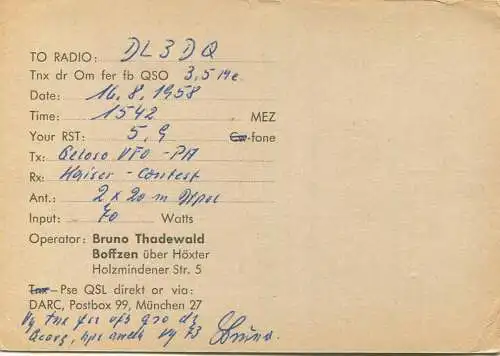 TO RADIO: DL3DQ
Tnx dr Om fer fb QSO 3,5 Mc.
Date: 16.8.1958
Time: 1542 MEZ
Your RST: 5,9 Cw-fone
Tx: Geloso VFO-PA
Rx: Kaiser-Contest
Ant.: 2 x 20 m Dipol
Input: 70 Watts
Operator: Bruno Thadewald
Boffzen über Höxter
Holzmindener Str. 5
Tnx-Pse QSL direkt or via:
DARC, Postbox 99, München 27
Vy tnx fer ufb qso dr
Georg, hpe awdh vy 73 Bruno.